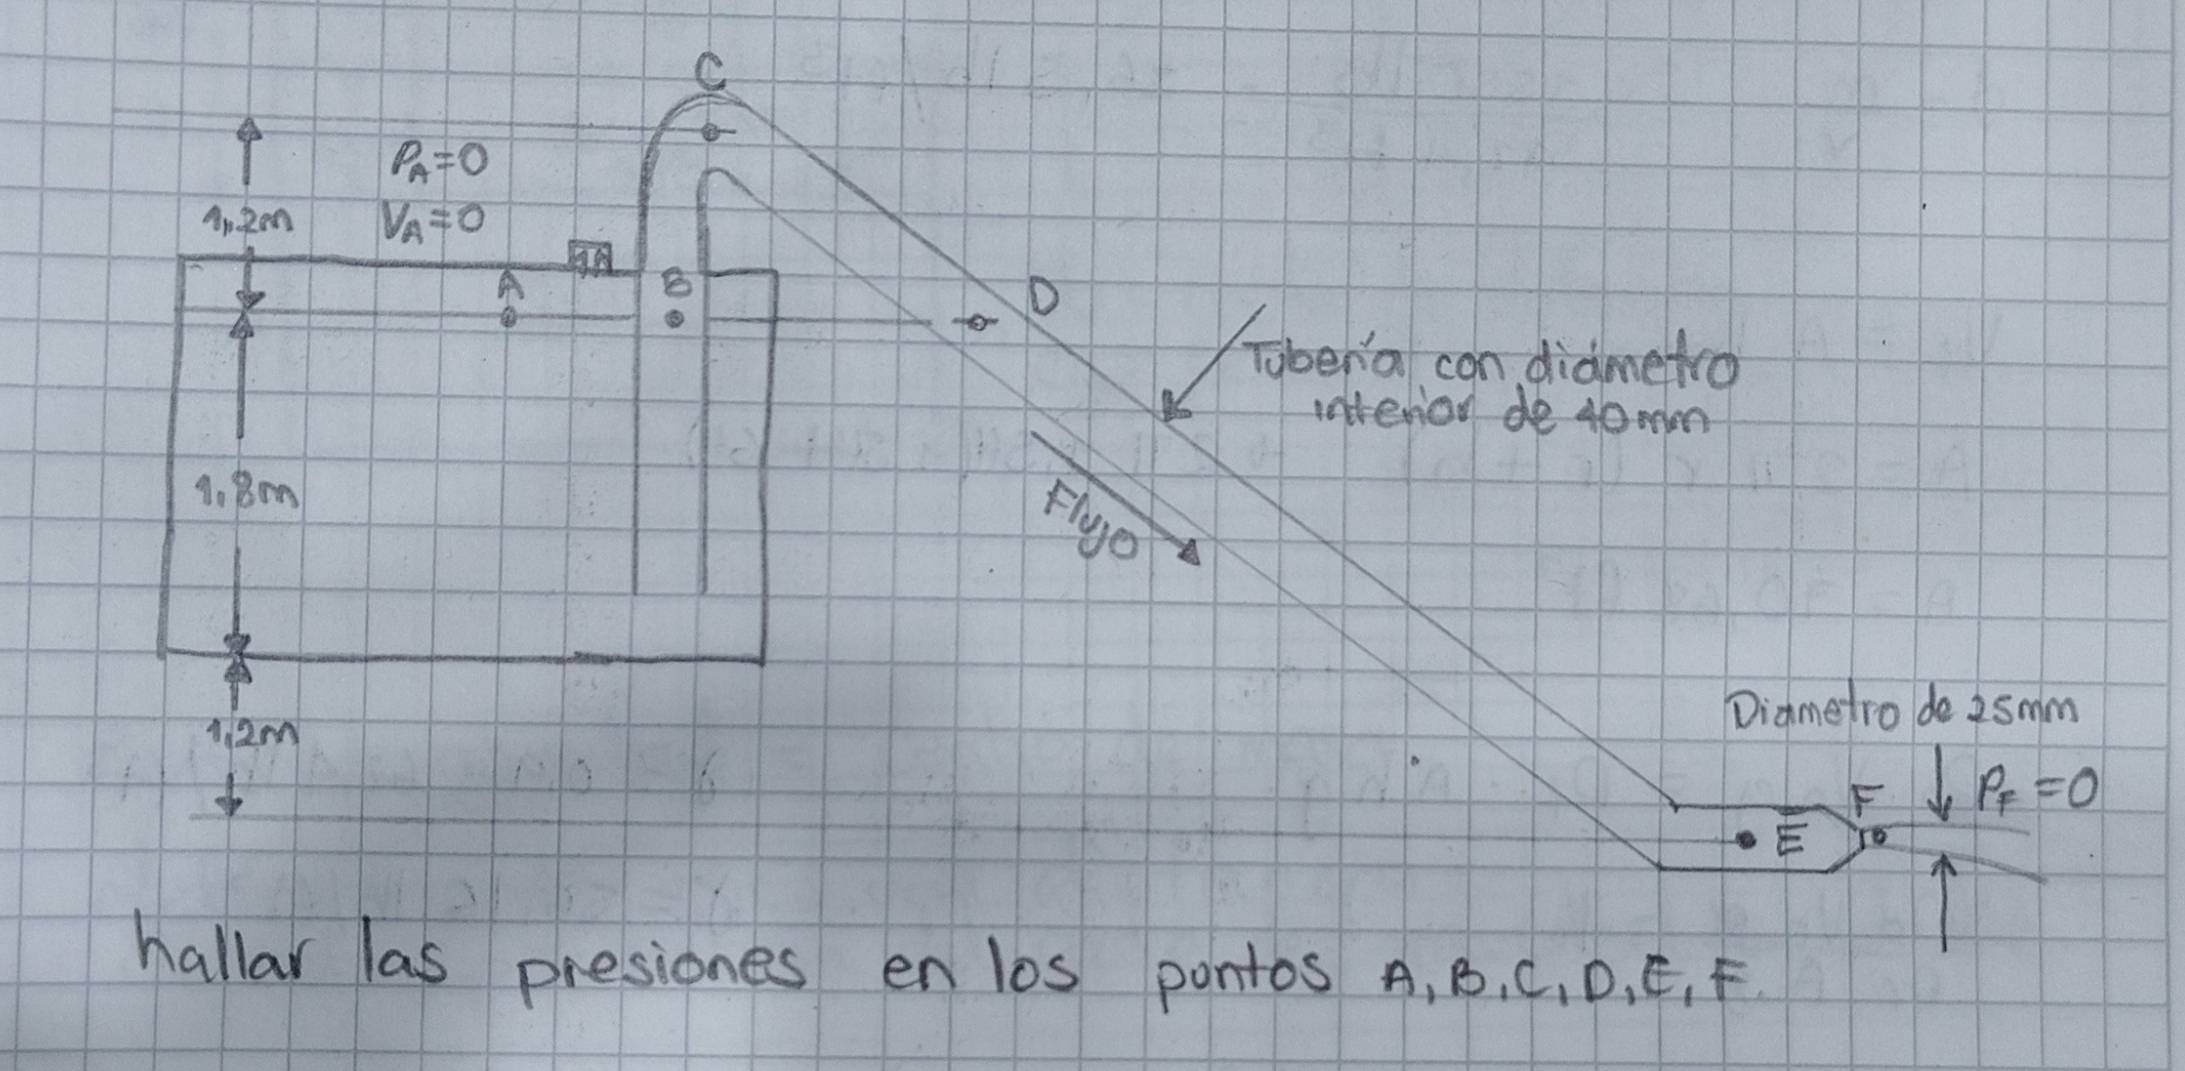 C
1,2m
PA=0
VA=0
A
B
D
Tubería con diámetro
interior de 40mm
1,8m
Flujo
1,2m
Diametro de 25mm
F
PF=0
E
hallar las presiones en los puntos A, B, C, D, E, F.